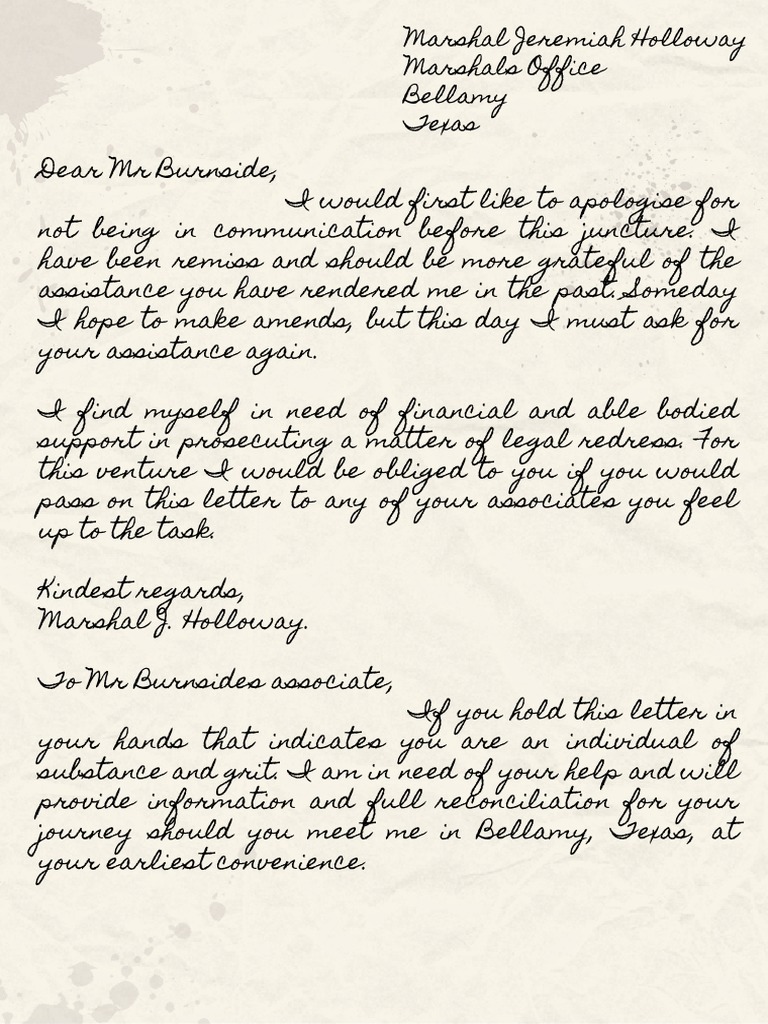 Marshal Jeremiah Holloway
Marshals Office
Bellamy
Texas
Dear Mr Burnside,
I would first like to apologise for
not being in communication before this juncture. I
have been remiss and should be more grateful of the
assistance you have rendered me in the past. Someday
I hope to make amends, but this day I must ask for
your assistance again.
I find myself in need of financial and able bodied
support in prosecuting a matter of legal redress. For
this venture I would be obliged to you if you would
pass on this letter to any of your associates you feel
up to the task.
Kindest regards,
Marshal J. Holloway.
To Mr Burnsides associate,
If you hold this letter in
your hands that indicates you are an individual of
substance and grit. I am in need of your help and will
provide information and full reconciliation for your
journey should you meet me in Bellamy, Texas, at
your earliest convenience.